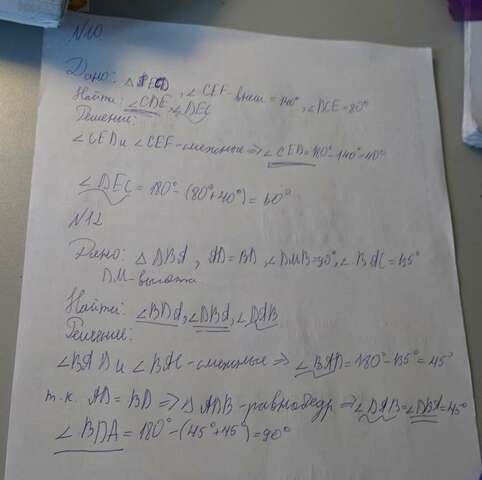 N10
Дано: △ ECD, ∠CEF-внеш = 140°, ∠DCE = 80°
Найти: ∠CDE, ∠DEC
Решение:
∠CED и ∠CEF-смежные ⇒ ∠CED = 180° - 140° = 40°
∠DEC = 180° - (80° + 40°) = 60°
N12
Дано: △ DBA, AD = BD, ∠DMB = 90°, ∠BAC = 135°
DM-высота
Найти: ∠BDA, ∠DBA, ∠DAB
Решение:
∠BAD и ∠BAC-смежные ⇒ ∠BAD = 180° - 135° = 45°
т.к. AD = BD ⇒ △ ADB-равнобедр ⇒ ∠DAB = ∠DBA = 45°
∠BDA = 180° - (45° + 45°) = 90°